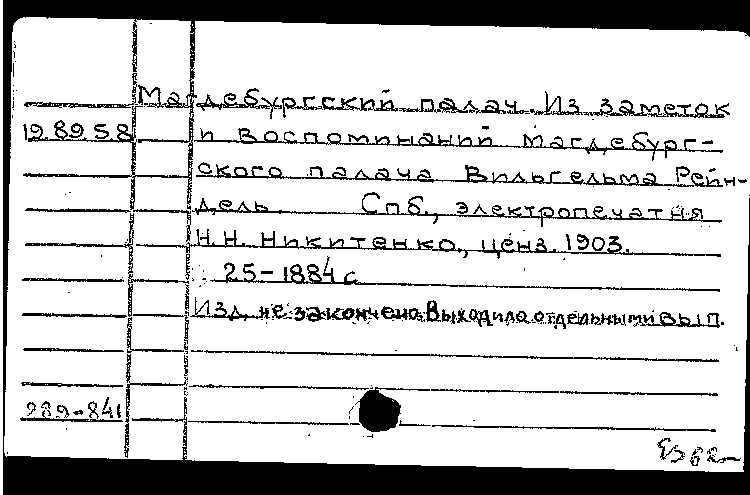 Магдебургский палач. Из заметок
19.89.58 и воспоминаний магдебург-
ского палача Вильгельма Рейн-
дель. Спб., электропечатня
Н.Н. Никитенко, ценз. 1903.
25-1884 с.
Изд. не закончено. Выходило отдельными вып.
289-841